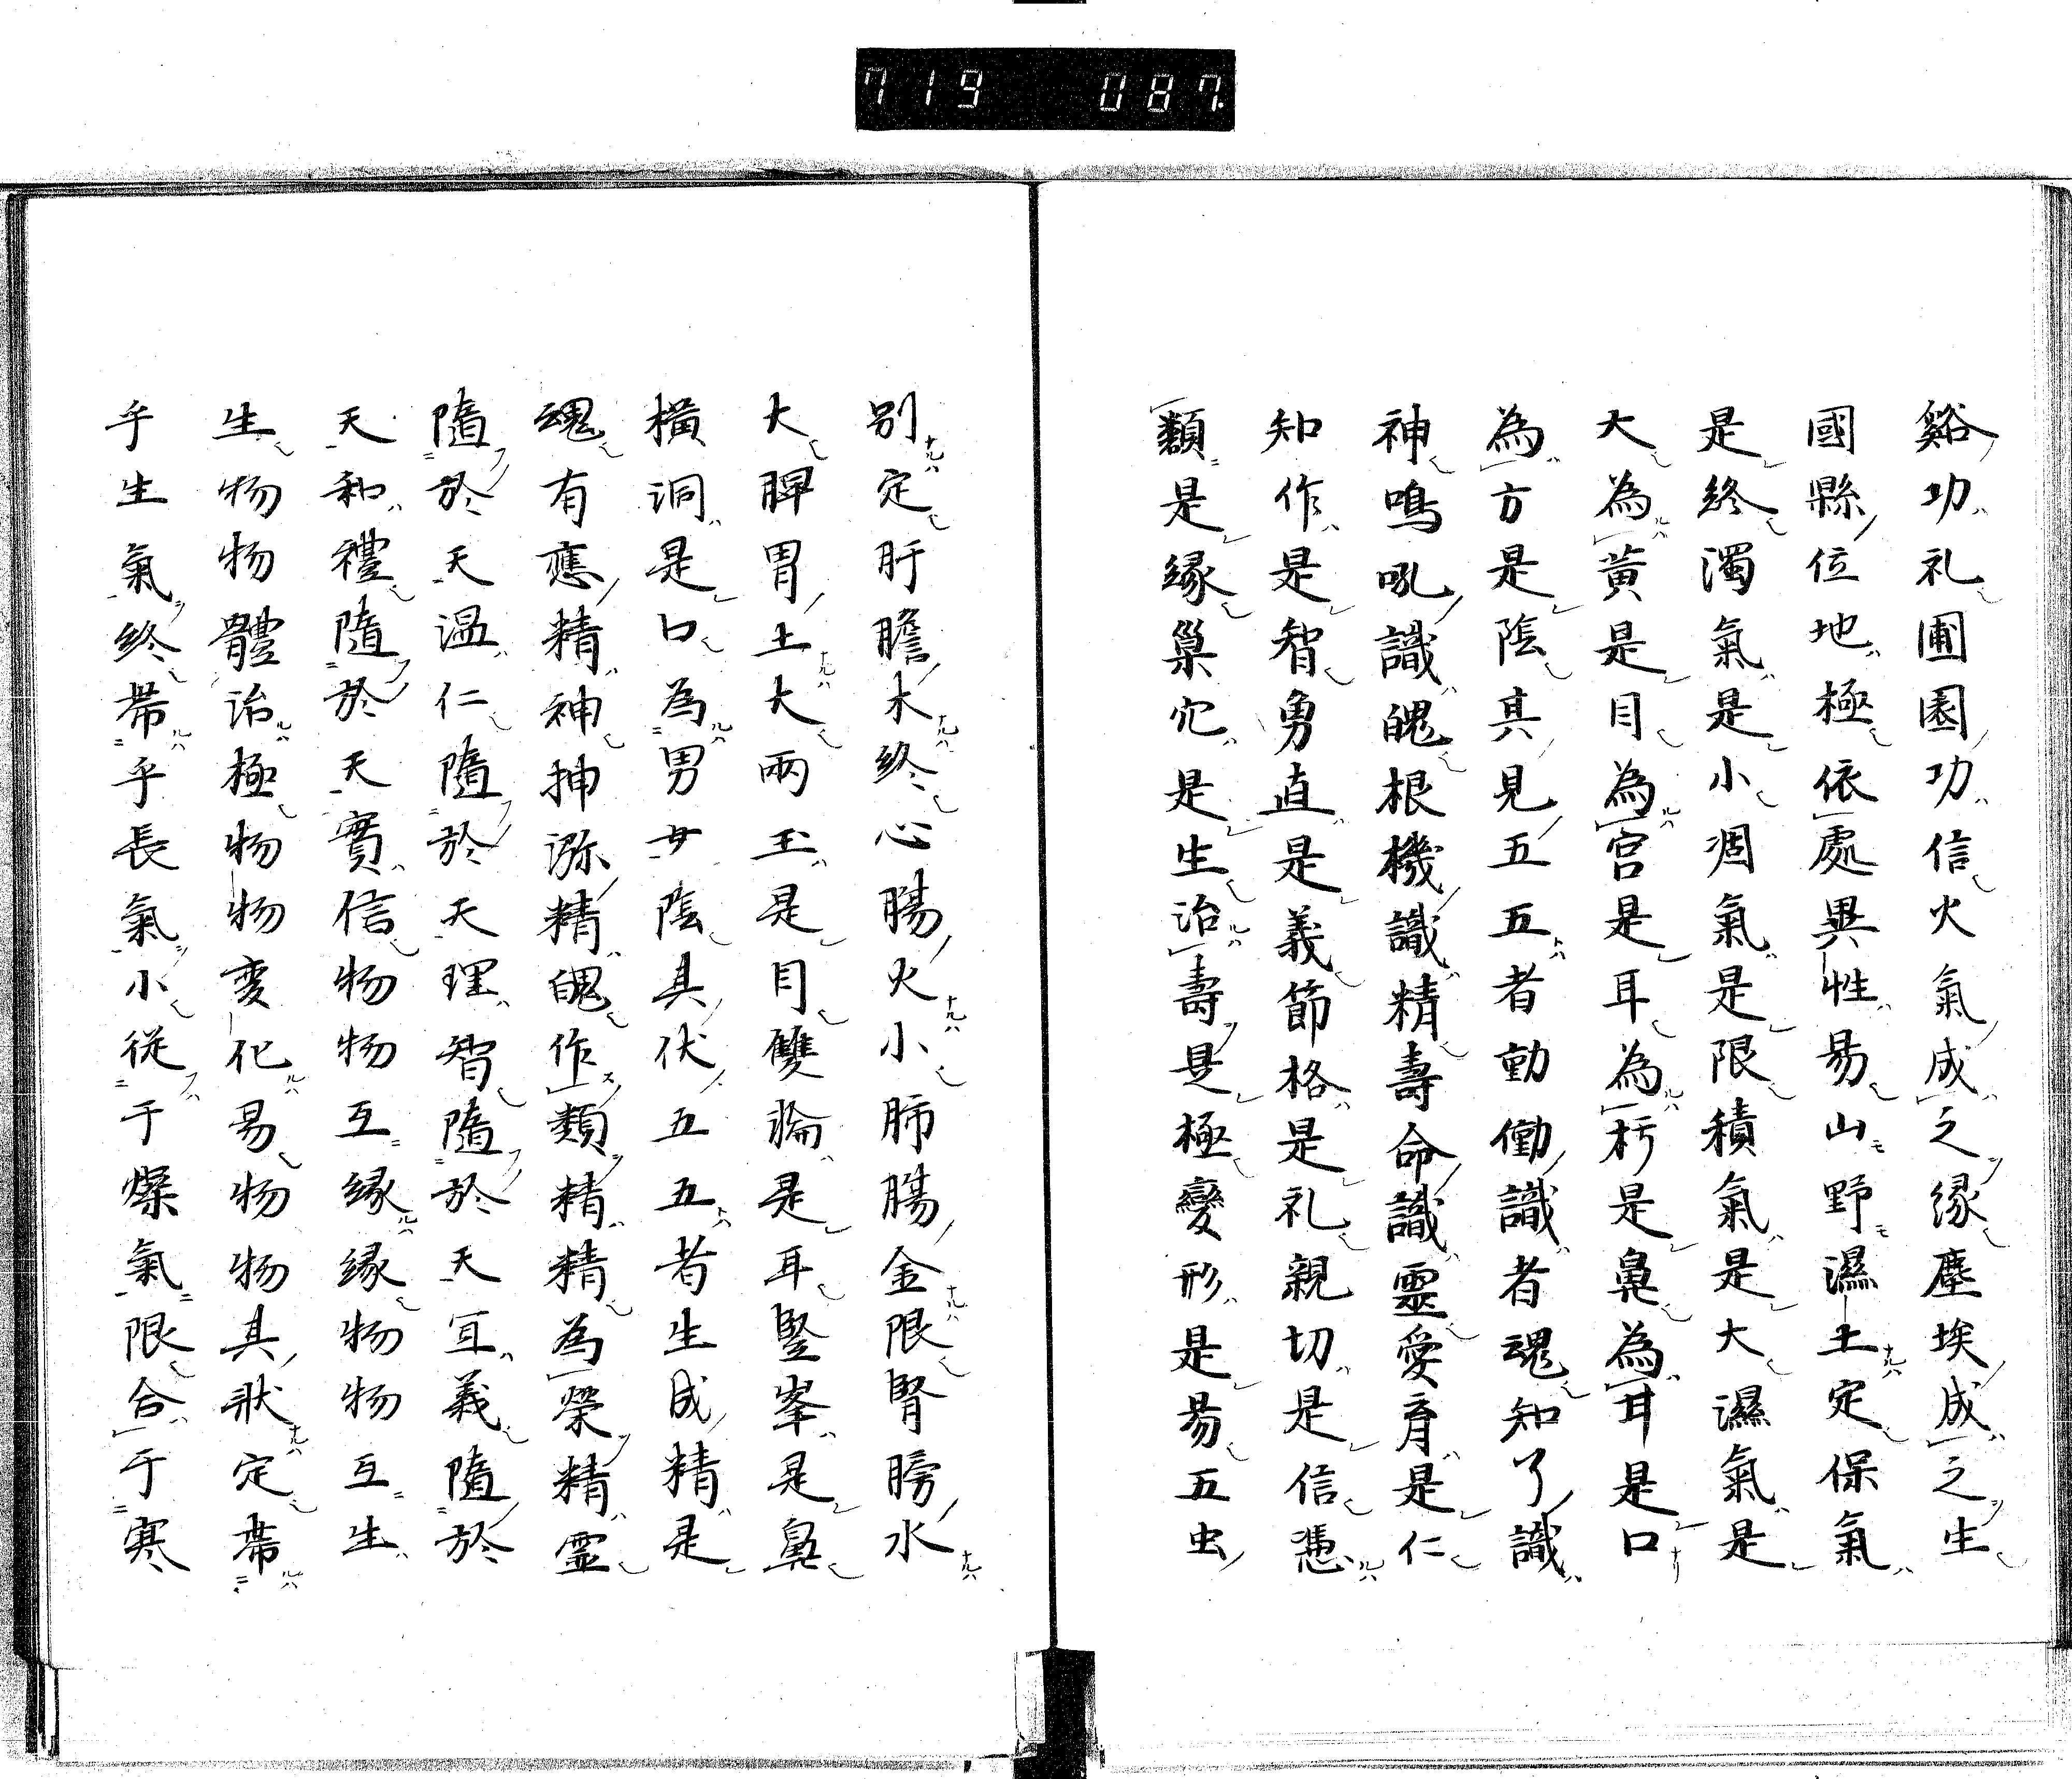 719 087.
谿功礼圃園功信火氣成之縁塵埃成之生
國縣位地極依處異性易山野濕土定保氣
是終濁氣是小凋氣是限積氣是大濕氣是
大為黃是目為宮是耳為朽是鼻為耳是口
為方是陰其見五五者動働識者魂知了識
神鳴吼識魄根機識精壽命識靈愛育是仁
知作是智勇直是義節格是礼親切是信憑
類是縁巢穴是生治壽是極變形是易五虫
別定肝膽木終心腸火小肺腸金限腎膀水
大脾胃土大兩玉是目雙輪是耳豎峯是鼻
橫洞是口為男女陰具伏五五者生成精是
魂有應精神抻溺精魄作類精精為榮精霊
隨於天温仁隨於天理智隨於天宜義隨於
天和禮隨於天實信物物互縁縁物物互生
生物物體治極物物変化易物物具状定帯
乎生氣終帯乎長氣小従于燥氣限合于寒